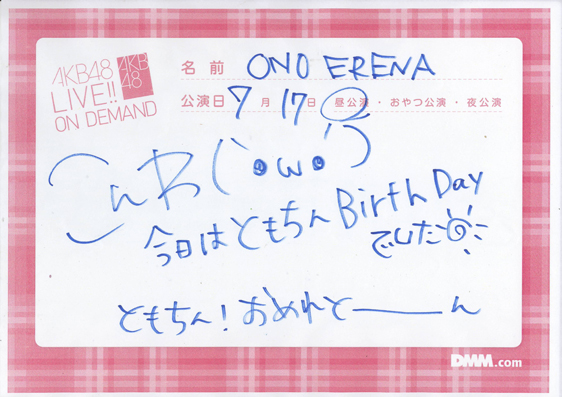 AKB48
LIVE!!
ON DEMAND
AKB
48
名前 ONO ERENA
公演日 7月17日 昼公演・おやつ公演・夜公演
(`・ω・´)
今日はともちんBirthDay
でした
ともちん!おめれとーーん
DMM.com